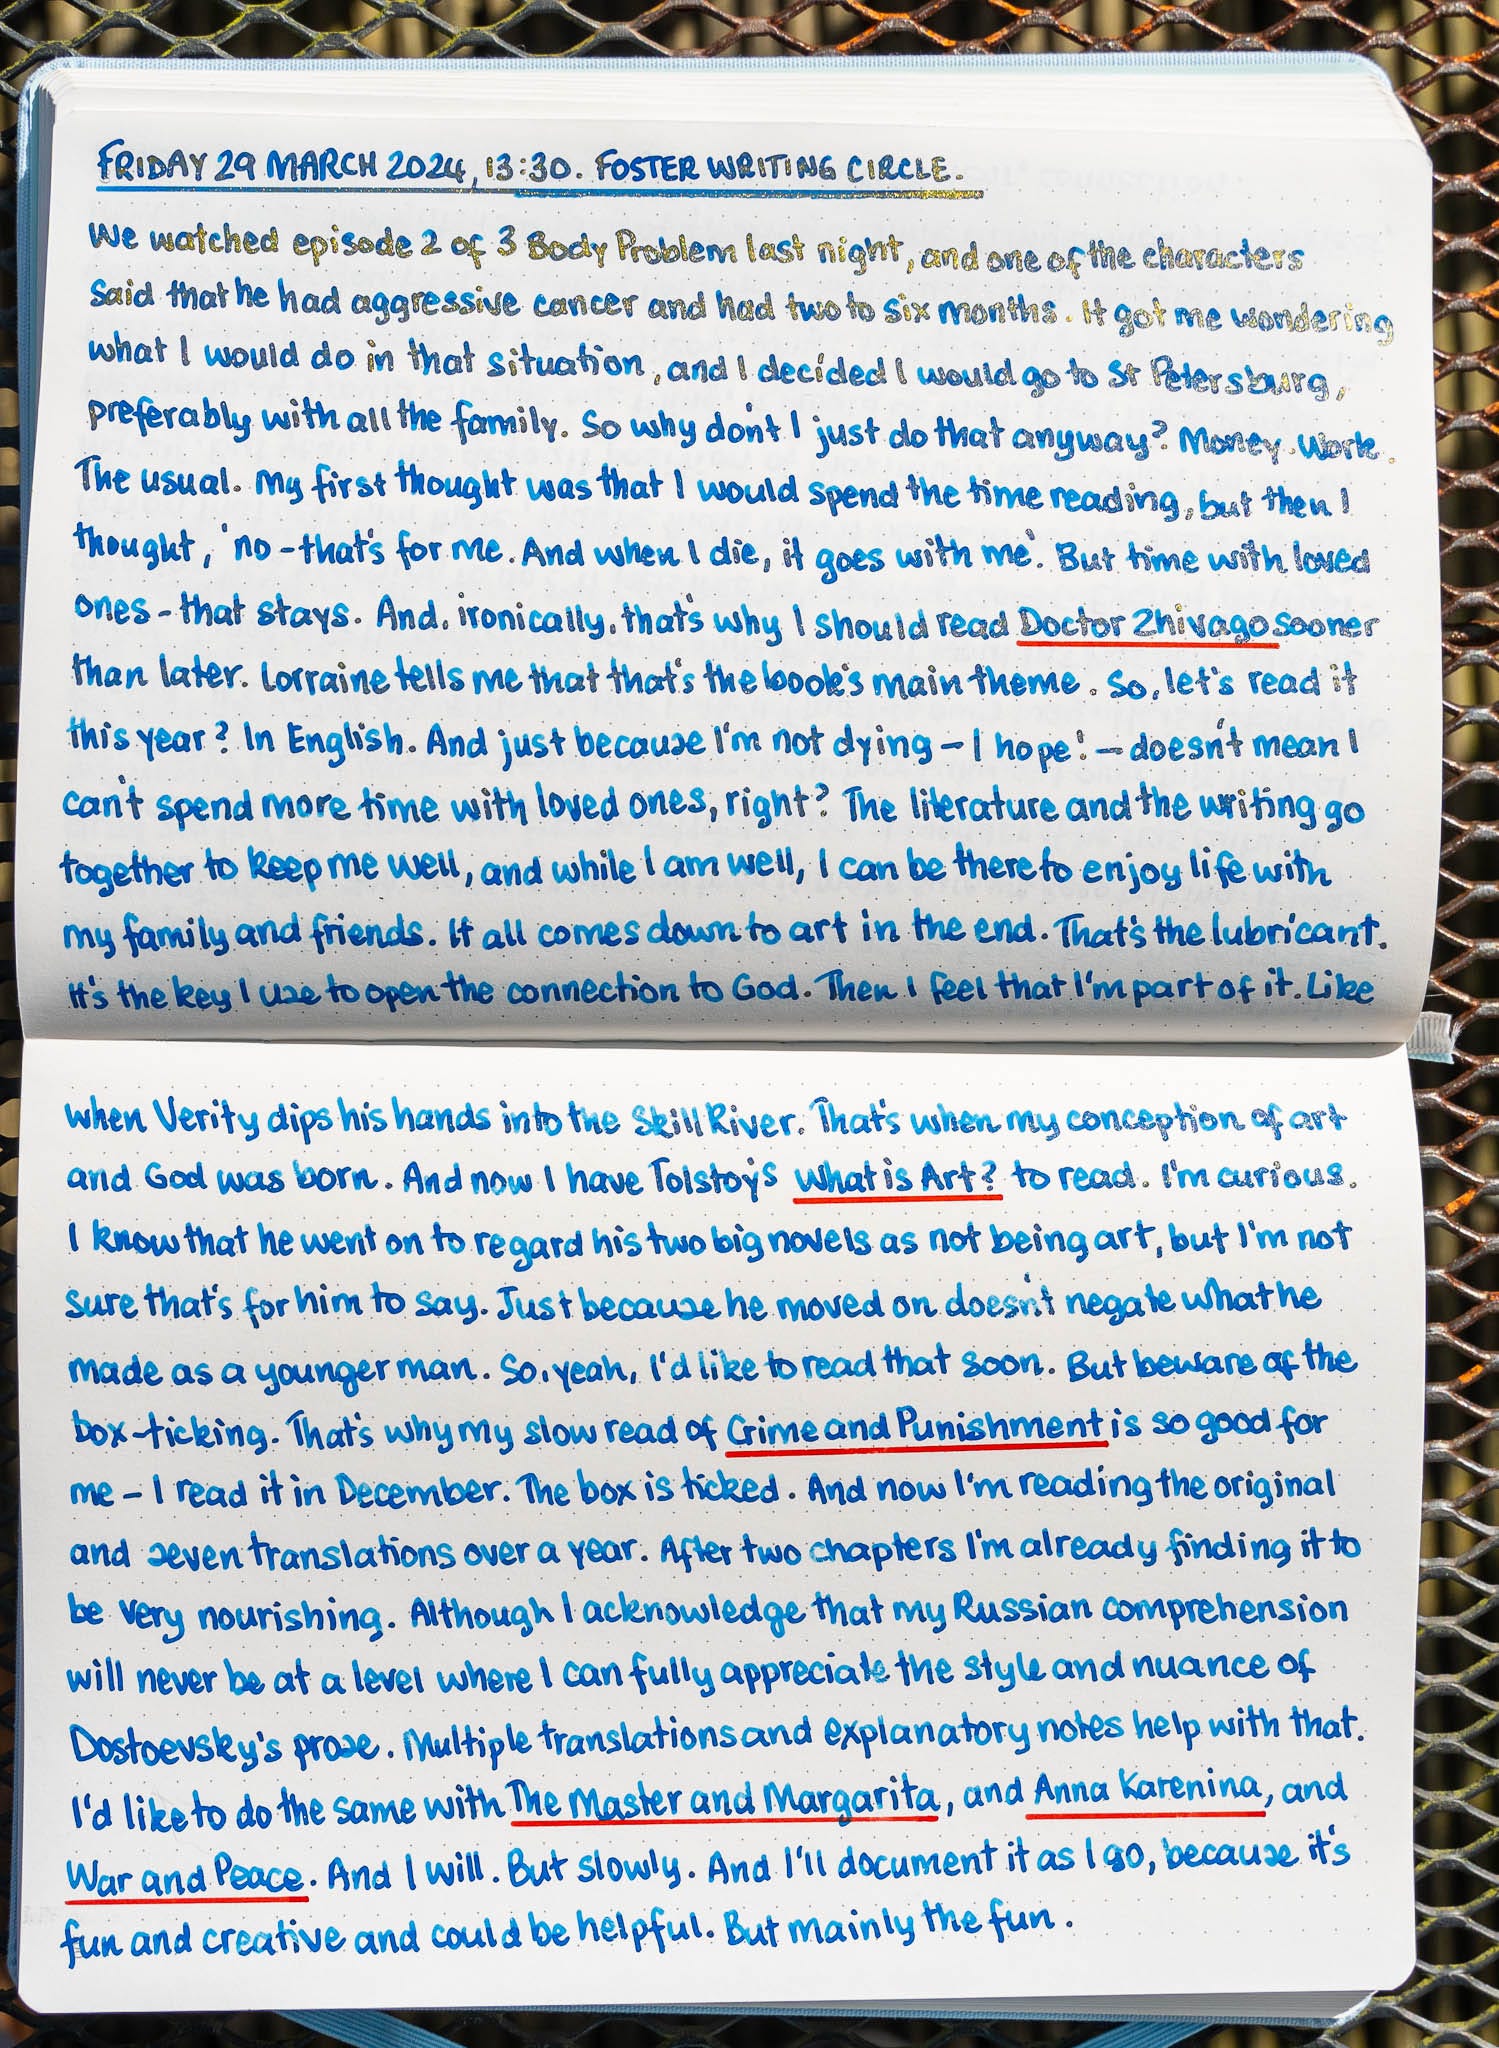 FRIDAY 29 MARCH 2024, 13:30. FOSTER WRITING CIRCLE.
We watched episode 2 of 3 Body Problem last night, and one of the characters
said that he had aggressive cancer and had two to six months. It got me wondering
what I would do in that situation, and I decided I would go to St Petersburg,
preferably with all the family. So why don't I just do that anyway? Money. Work.
The usual. My first thought was that I would spend the time reading, but then I
thought, 'no - that's for me. And when I die, it goes with me'. But time with loved
ones - that stays. And, ironically, that's why I should read Doctor Zhivago sooner
than later. Lorraine tells me that that's the book's main theme. So, let's read it
this year? In English. And just because I'm not dying - I hope! - doesn't mean I
can't spend more time with loved ones, right? The literature and the writing go
together to keep me well, and while I am well, I can be there to enjoy life with
my family and friends. It all comes down to art in the end. That's the lubricant.
It's the key I use to open the connection to God. Then I feel that I'm part of it. Like
when Verity dips his hands into the Skill River. That's when my conception of art
and God was born. And now I have Tolstoy's What is Art? to read. I'm curious.
I know that he went on to regard his two big novels as not being art, but I'm not
sure that's for him to say. Just because he moved on doesn't negate what he
made as a younger man. So, yeah, I'd like to read that soon. But beware of the
box-ticking. That's why my slow read of Crime and Punishment is so good for
me - I read it in December. The box is ticked. And now I'm reading the original
and seven translations over a year. After two chapters I'm already finding it to
be very nourishing. Although I acknowledge that my Russian comprehension
will never be at a level where I can fully appreciate the style and nuance of
Dostoevsky's prose. Multiple translations and explanatory notes help with that.
I'd like to do the same with The Master and Margarita, and Anna Karenina, and
War and Peace. And I will. But slowly. And I'll document it as I go, because it's
fun and creative and could be helpful. But mainly the fun.